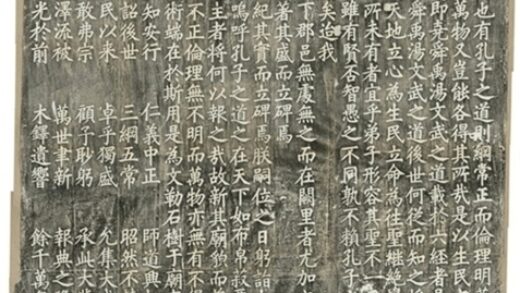 也有孔子之道則綱常正而倫理明
萬物又豈能各得其所哉是以生民
即堯舜禹湯文武之道載於六經者
舜禹湯文武之道後世何從而知之
天地立心為生民立命為往聖繼絕
所未有者宜乎弟子形容其聖不一
雖有賢否智愚之不同孰不賴孔子
矣迨我
下郡邑無處無之而在闕里者尤加
著其盛而立碑焉
紀其實而立碑焉朕嗣位之日躬詣
嗚呼孔子之道之在天下如布帛菽
主者將何以報之哉故新其廟貌而
不正倫理無不明而萬物亦無不得
術端在於斯用是為文勒石樹于廟
知安行 仁義中正 師道興
詔後世 三綱五常 昭然不
民以來 卓乎獨盛 允集大
敢弗宗 顧予眇躬 承此大
澤流被 萬世聿新 報典之
光於前 木鐸遺響 餘千萬